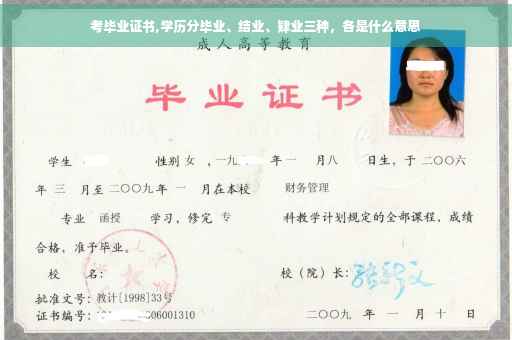 考毕业证书,学历分毕业、结业、肄业三种，各是什么意思
成人高等教育
毕业证书
学生 性别 女 ，一九 年一 月八 日生，于 二〇〇六
年 三 月至 二〇〇九 年 一 月在本校 财务管理
专业 函授 学习，修完 专 科教学计划规定的全部课程，成绩
合格，准予毕业。
校 名： 校（院）长：
批准文号：教计[1998]33号
证书编号： 06001310 二〇〇九 年 一 月 十 日